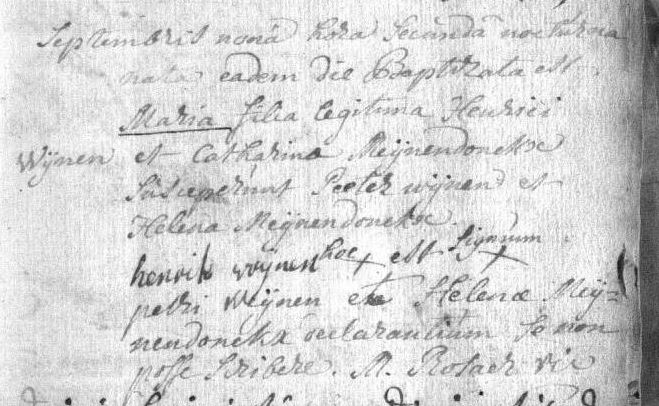 Septembris nonâ hora Secundâ nocturna
nata eadem die Baptizata est
Maria filia legitima Henrici
Wijnen et Catharina Meijnendonckx
Susceperunt Peeter wijnen et
Helena Meijnendonckx
henrik wijnen hoc x est x Signum
petri Wijnen et Helenæ Meij=
nendonckx declarantium se non
posse Scribere. M. vic